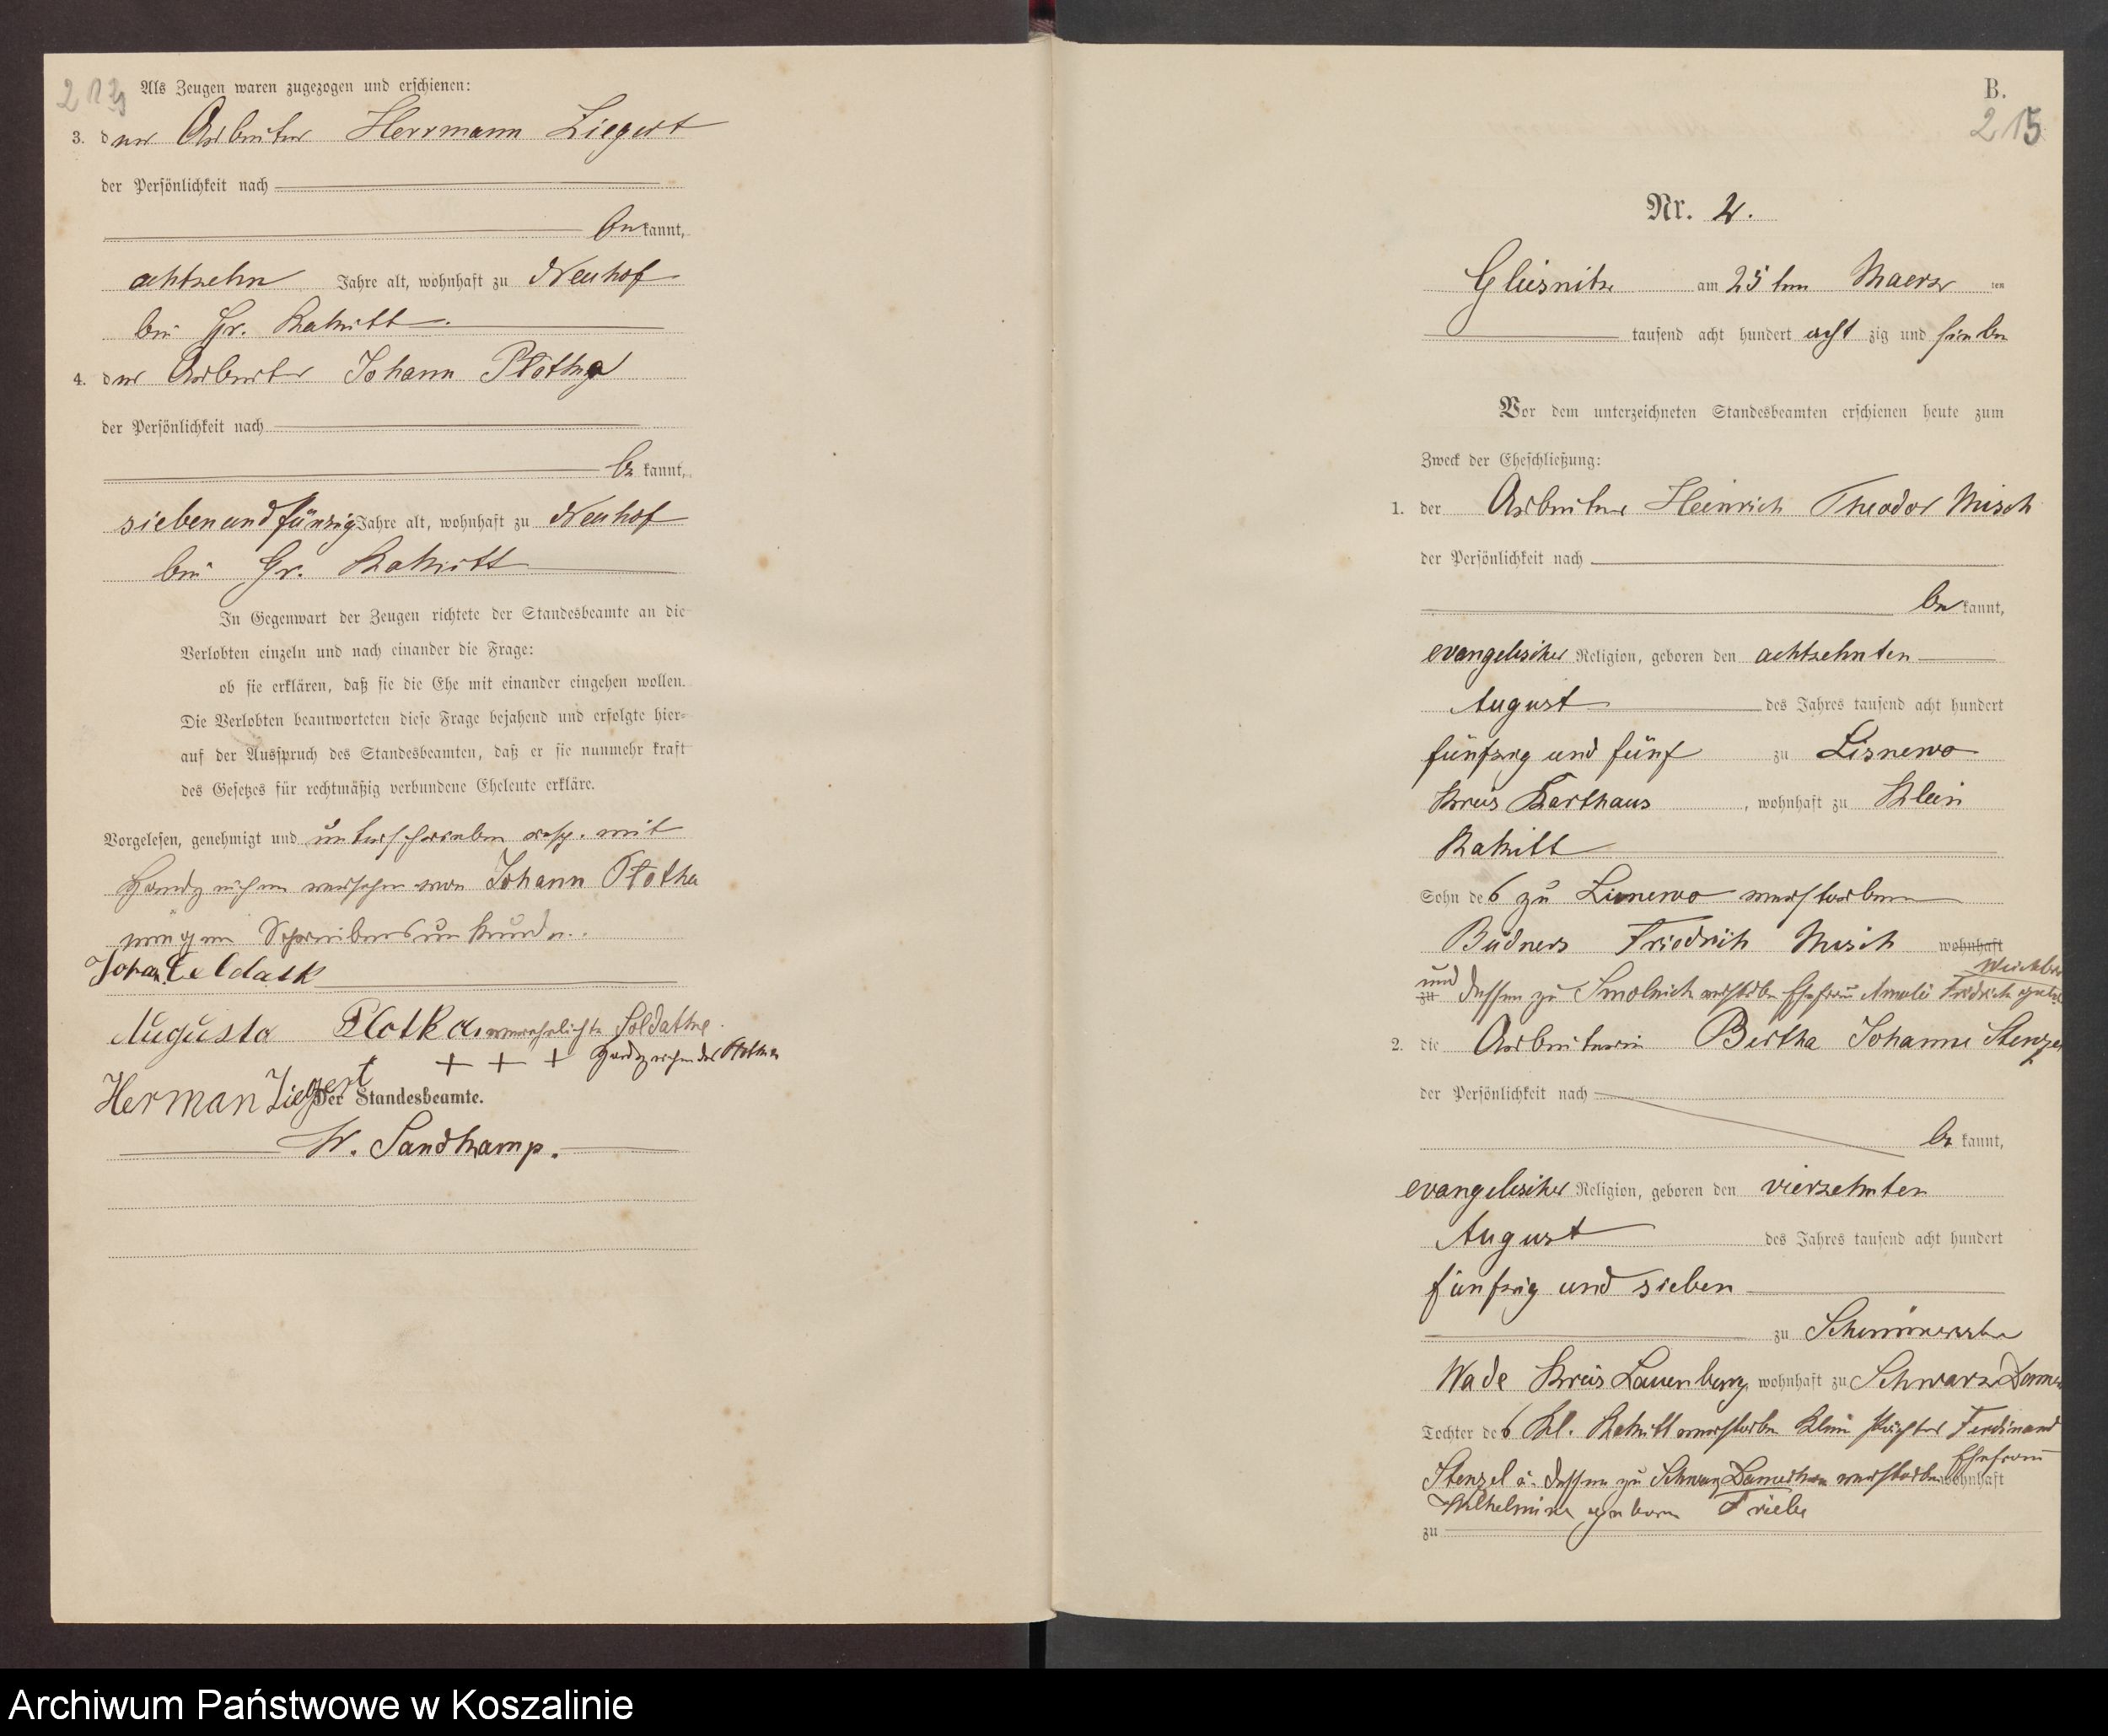 213
Als Zeugen waren zugezogen und erschienen:
3. der Arbeiter Herrmann Ziegert
der Persönlichkeit nach
be kannt,
achtzehn Jahre alt, wohnhaft zu Neuhof
bei Gr. Rakitt.
4. der Arbeiter Johann Plotka
der Persönlichkeit nach
be kannt,
siebenundfünzig Jahre alt, wohnhaft zu Neuhof
bei Gr. Rakitt
In Gegenwart der Zeugen richtete der Standesbeamte an die
Verlobten einzeln und nach einander die Frage:
ob sie erklären, daß sie die Ehe mit einander eingehen wollen.
Die Verlobten beantworteten diese Frage bejahend und erfolgte hier-
auf der Ausspruch des Standesbeamten, daß er sie nunmehr kraft
des Gesetzes für rechtmäßig verbundene Eheleute erkläre.
Vorgelesen, genehmigt und unterschrieben resp. mit
Handzeichen versehen von Johann Plotka
wegen Schreibensunkunde.
Johan
Augusta Plotka verehelichte Soldatke
+ + + Handzeichen des Plotka
Herman Ziegert
Der Standesbeamte.
W. Sandkamp.
B.
215
Nr. 2.
Gliesnitz am 25 ten Maerz ten
tausend acht hundert acht zig und sieben
Vor dem unterzeichneten Standesbeamten erschienen heute zum
Zweck der Eheschließung:
1. der Arbeiter Heinrich Theodor Misch
der Persönlichkeit nach
be kannt,
evangelischer Religion, geboren den achtzehnten
August des Jahres tausend acht hundert
fünfzig und fünf zu Lisnewo
Kreis Karthaus, wohnhaft zu Klein
Rakitt
Sohn des zu Lisnewo verstorbenen
Büdners Friedrich Misch wohnhaft
und zu dessen zu verstorbe Ehefrau Amalie Friedrike gebor
2. die Arbeiterin Bertha Johanne Stenzel
der Persönlichkeit nach
be kannt,
evangelischer Religion, geboren den vierzehnten
August des Jahres tausend acht hundert
fünfzig und sieben
zu
Kreis Lauenburg wohnhaft zu Schwarz Damer
Tochter des Kl. Rakitt verstorben Klein Pächter Ferdinand
Stenzel u. dessen zu Schwarz Damerkow verstorben Ehefrau wohnhaft
Wilhelmine geboren Friebe
zu
Archiwum Państwowe w Koszalinie